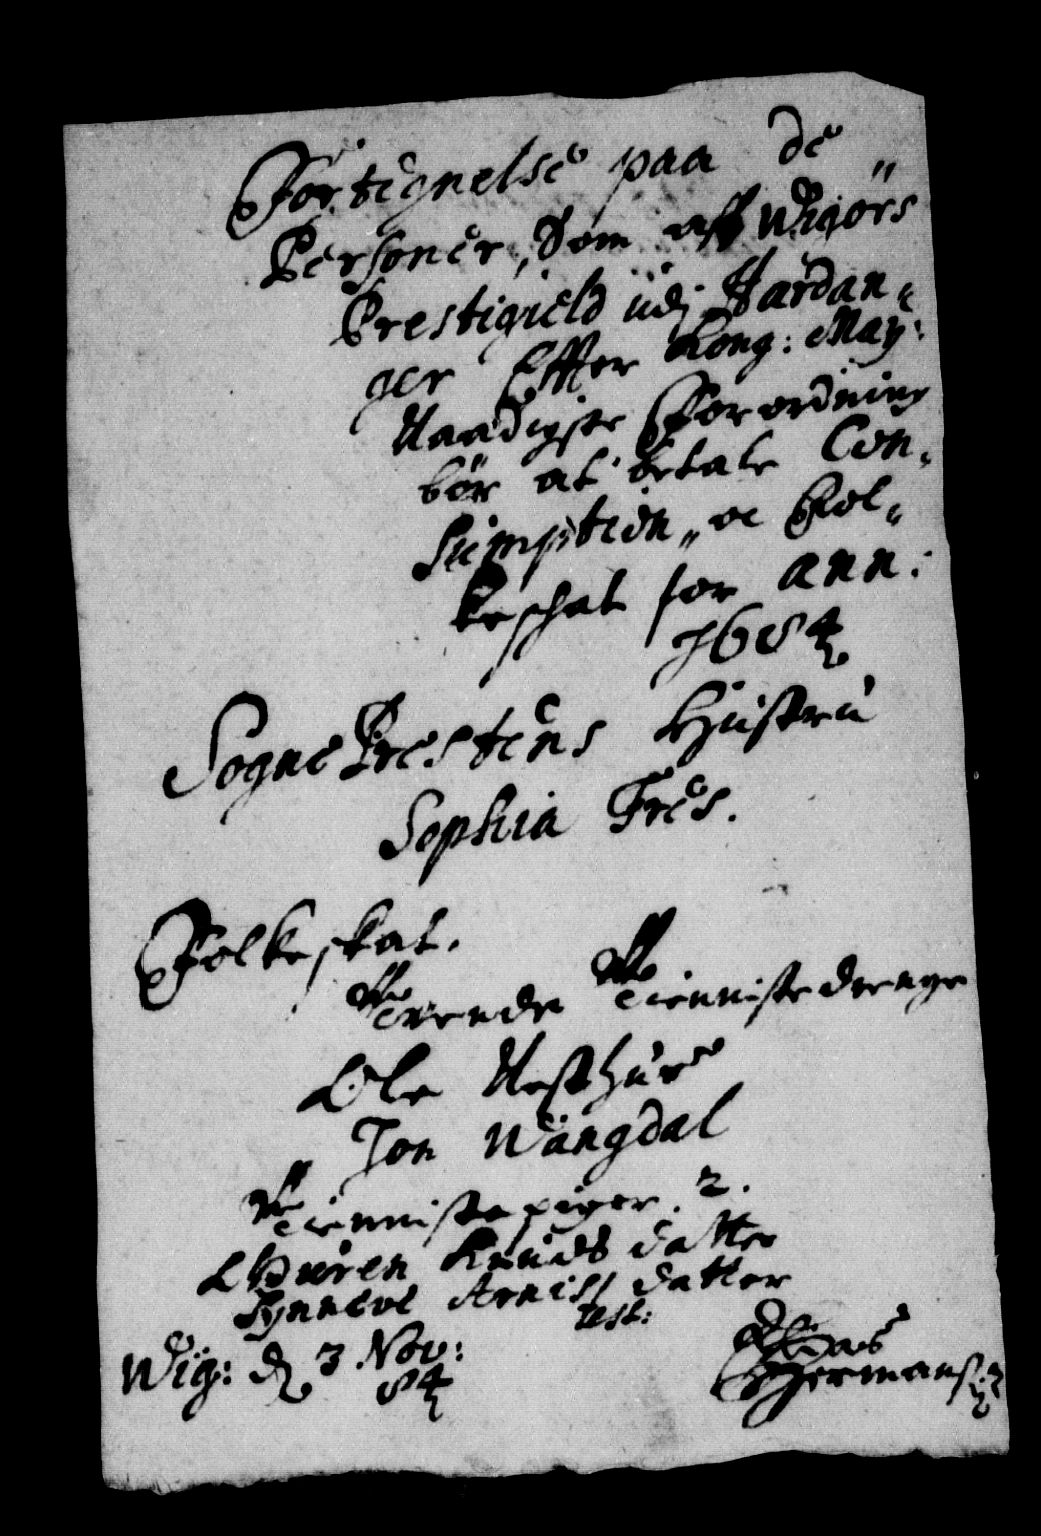 Fortegnelse paa de
Personer, Som aff Wigørs
Prestigield udj Hardan„
ger Effter Kong: May:
Naadigste Forordning
bør at betale Con„
sumption„ oc Fol„
keschat for ann:
1684
Sogne Prestens Hustru
Sophia Fres.
Folkeskat.
Trende Tienniste drenge
Ole Nesthus
Jon Wangdal
Tienniste piger. 2.
Guren Knuds datter
Synneve Arnis datter
test:
Wig: d 3 Nov:
84
Hermans: